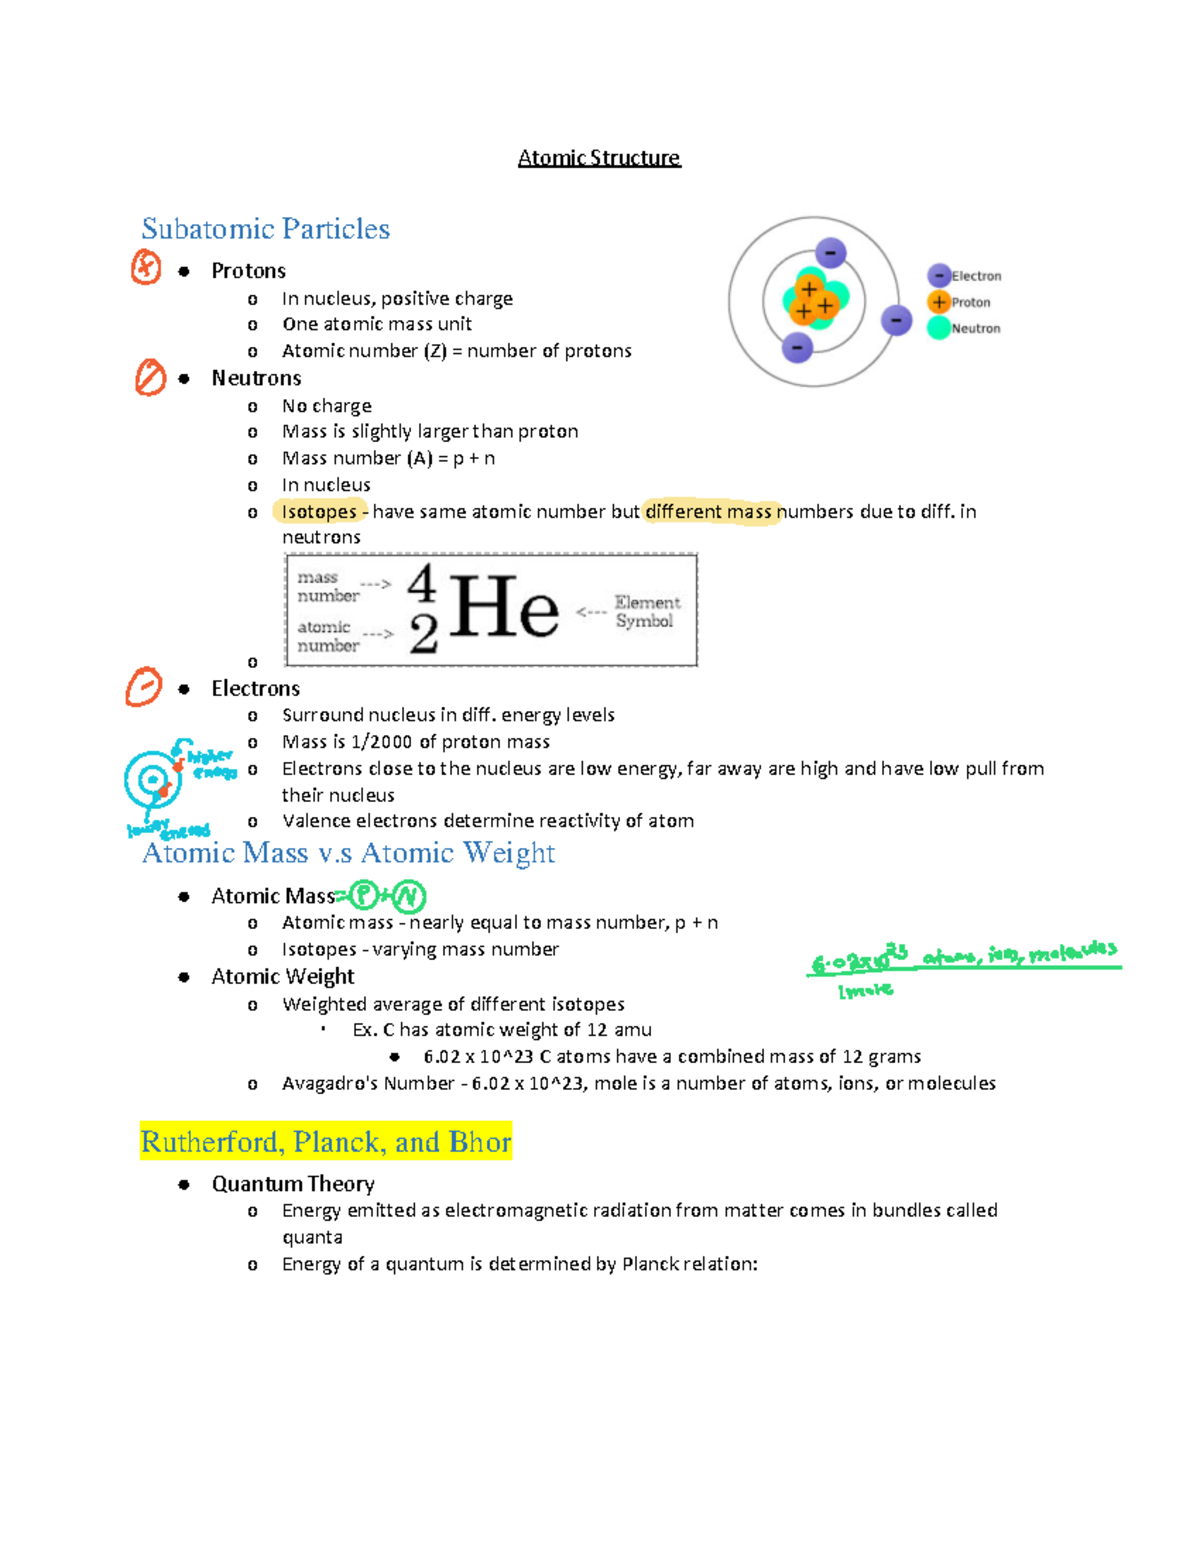 Atomic Structure
Subatomic Particles
● Protons
o In nucleus, positive charge
o One atomic mass unit
o Atomic number (Z) = number of protons
- Electron
+ Proton
Neutron
● Neutrons
o No charge
o Mass is slightly larger than proton
o Mass number (A) = p + n
o In nucleus
o Isotopes - have same atomic number but different mass numbers due to diff. in
neutrons
mass number ---> 4
He <--- Element Symbol
atomic number ---> 2
o
● Electrons
o Surround nucleus in diff. energy levels
o Mass is 1/2000 of proton mass
higher
energy
o Electrons close to the nucleus are low energy, far away are high and have low pull from
their nucleus
o Valence electrons determine reactivity of atom
Atomic Mass v.s Atomic Weight
● Atomic Mass = P + N
o Atomic mass - nearly equal to mass number, p + n
o Isotopes - varying mass number
6.02x10^23 atoms, ions, molecules
1 mole
● Atomic Weight
o Weighted average of different isotopes
▪ Ex. C has atomic weight of 12 amu
● 6.02 x 10^23 C atoms have a combined mass of 12 grams
o Avagadro's Number - 6.02 x 10^23, mole is a number of atoms, ions, or molecules
Rutherford, Planck, and Bhor
● Quantum Theory
o Energy emitted as electromagnetic radiation from matter comes in bundles called
quanta
o Energy of a quantum is determined by Planck relation: